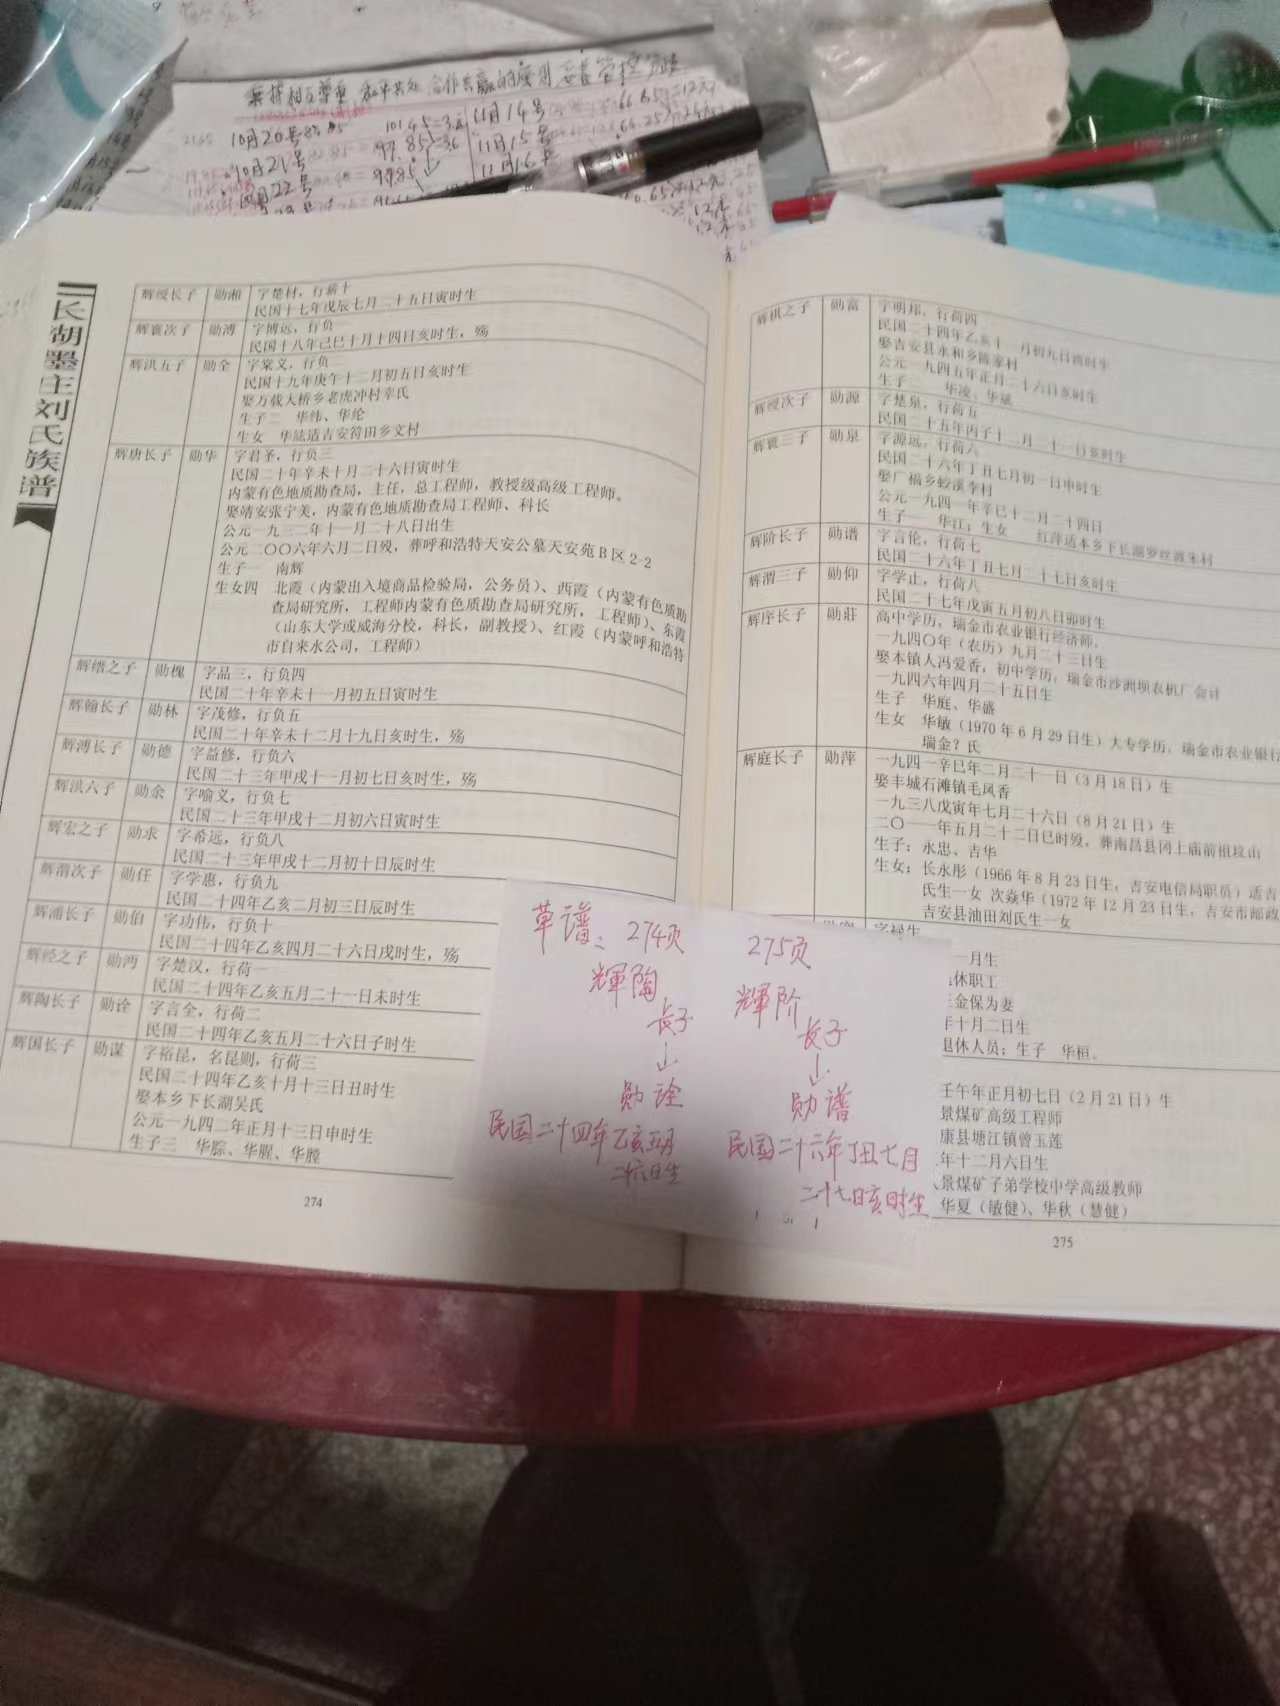 無持相互尊重 和平共处 合作共赢的原则 妥善管控分歧
10月20号
10月21号
10月22号
11月14号
11月15号
11月16号
长湖墨庄刘氏族谱
辉绶长子 勋湘 字楚材，行薪十
民国十七年戊辰七月二十五日寅时生
辉寰次子 勋溥 字博远，行负一
民国十八年己巳十月十四日亥时生，殇
辉洪五子 勋全 字棠义，行负二
民国十九年庚午十二月初五日亥时生
娶万载大桥乡老虎冲村辜氏
生子二 华纬、华纶
生女一 华竑适吉安符田乡文村
辉唐长子 勋华 字君圣，行负三
民国二十年辛未十月二十六日寅时生
内蒙有色地质勘查局，主任，总工程师，教授级高级工程师。
娶靖安张宁美，内蒙有色地质勘查局工程师、科长
公元一九三二年十一月二十八日出生
公元二〇〇六年六月二日殁，葬呼和浩特天安公墓天安苑B区2-2
生子一 南辉
生女四 北霞（内蒙出入境商品检验局，公务员）、西霞（内蒙有色质勘
查局研究所，工程师内蒙有色质勘查局研究所，工程师）、东霞
（山东大学或威海分校，科长，副教授）、红霞（内蒙呼和浩特
市自来水公司，工程师）
辉缙之子 勋槐 字品三，行负四
民国二十年辛未十一月初五日寅时生
辉翰长子 勋林 字茂修，行负五
民国二十年辛未十二月十九日亥时生，殇
辉溥长子 勋德 字益修，行负六
民国二十三年甲戌十一月初七日亥时生，殇
辉洪六子 勋余 字喻义，行负七
民国二十三年甲戌十二月初六日寅时生
辉宏之子 勋求 字希远，行负八
民国二十三年甲戌十二月初十日辰时生
辉渭次子 勋任 字学惠，行负九
民国二十四年乙亥二月初三日辰时生
辉浦长子 勋伯 字功伟，行负十
民国二十四年乙亥四月二十六日戌时生，殇
辉经之子 勋沔 字楚汉，行荷一
民国二十四年乙亥五月二十一日未时生
辉陶长子 勋诠 字言全，行荷二
民国二十四年乙亥五月二十六日子时生
辉国长子 勋谋 字裕昆，名昆则，行荷三
民国二十四年乙亥十月十三日丑时生
娶本乡下长湖吴氏
公元一九四二年正月十三日申时生
生子三 华踪、华腥、华膛
274
辉棋之子 勋富 字明邦，行荷四
民国二十四年乙亥十一月初九日酉时生
娶吉安县永和乡陈家村
公元一九四五年正月二十六日亥时生
生子二 华凌、华斌
辉绶次子 勋源 字楚泉，行荷五
民国二十五年丙子十二月二十一日亥时生
辉寰三子 勋泉 字源远，行荷六
民国二十六年丁丑七月初一日申时生
娶广福乡蛟溪李村
公元一九四一年辛巳十二月二十四日
生子一 华江；生女一 红萍适本乡下长湖萝丝渡朱村
辉阶长子 勋谱 字言伦，行荷七
民国二十六年丁丑七月二十七日亥时生
辉渭三子 勋仰 字学止，行荷八
民国二十七年戊寅五月初八日卯时生
辉序长子 勋莊 高中学历，瑞金市农业银行经济师，
一九四〇年（农历）九月二十三日生
娶本镇人冯爱香，初中学历，瑞金市沙洲坝农机厂会计
一九四六年四月二十五日生
生子 华庭、华盛
生女 华敏（1970年6月29日生）大专学历，瑞金市农业银行
瑞金？氏
辉庭长子 勋萍 一九四一辛巳年二月二十一日（3月18日）生
娶丰城石滩镇毛凤香
一九三八戊寅年七月二十六日（8月21日）生
二〇一一年五月二十二日巳时殁，葬南昌县冈上庙前祖坟山
生子：永忠、吉华
生女：长永彤（1966年8月23日生，吉安电信局职员）适吉
氏生一女 次焱华（1972年12月23日生，吉安市邮政
吉安县油田刘氏生一女
字禄生
一月生
休职工
金保为妻
年十月二日生
退休人员；生子 华桓。
壬午年正月初七日（2月21日）生
景煤矿高级工程师
康县塘江镇曾玉莲
年十二月六日生
景煤矿子弟学校中学高级教师
华夏（敏健）、华秋（慧健）
275
草谱：274页 275页
輝陶 輝阶
長子 長子
↓ ↓
勋诠 勋谱
民国二十四年乙亥五月 民国二十六年丁丑七月
二十六日生 二十七日亥时生